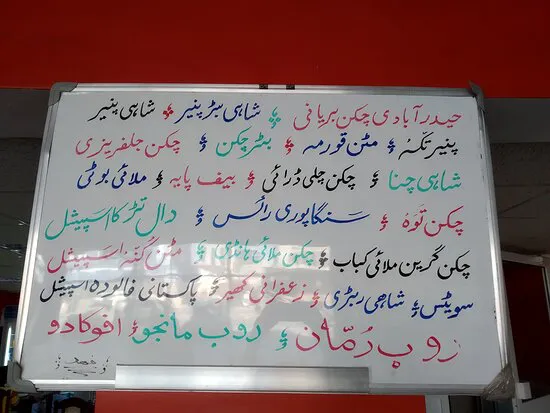 حیدرآبادی چکن بریانی ؛ شاہی بٹر پنیر ؛ شاہی پنیر
پنیر تکہ ؛ مٹن قورمہ ؛ بٹر چکن ؛ چکن جلفریزی
شاہی چنا ؛ چکن چلی ڈرائی ؛ بیف پایہ ؛ ملائی بوٹی
چکن توہ ؛ سنگاپوری رائس ؛ دال تڑکا اسپیشل
چکن گرین ملائی کباب ؛ چکن ملائی ہانڈی ؛ مٹن کنہ اسپیشل
سویٹس ؛ شاھی ربڑی ؛ زعفرانی کھیر ؛ پاکستانی فالودہ اسپیشل
روب رمّان ؛ روب مانجو ؛ افوکادو